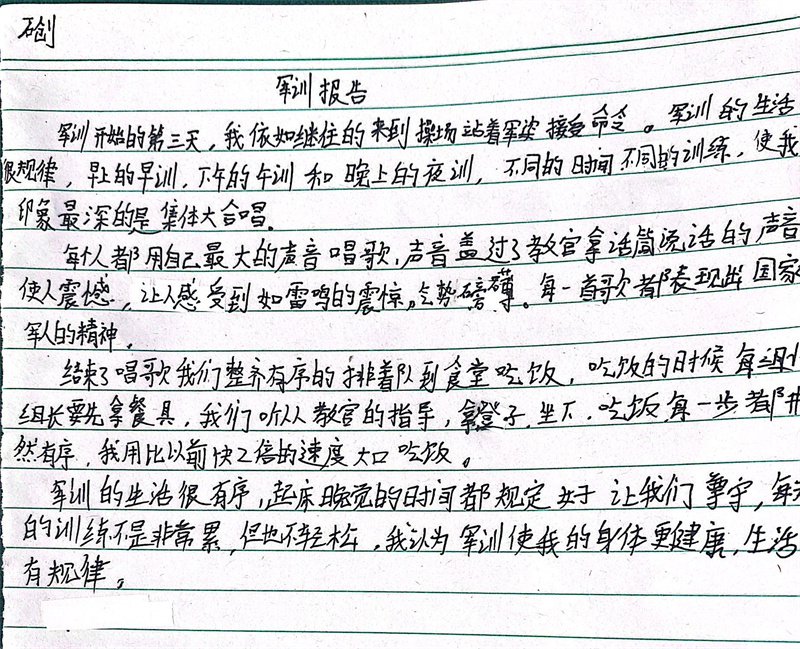 军训报告
军训开始的第三天，我依如继往的来到操场站着军姿接受命令。军训的生活
很规律，早上的早训，下午的午训和晚上的夜训，不同的时间不同的训练，使我
印象最深的是集体大合唱。
每个人都用自己最大的声音唱歌，声音盖过了教官拿话筒说话的声音
使人震撼，让人感受到如雷鸣的震惊，气势磅礴。每一首歌都表现出国家
军人的精神。
结束了唱歌我们整齐有序的排着队到食堂吃饭，吃饭的时候每组
组长要先拿餐具，我们听从教官的指导，拿凳子，坐下，吃饭每一步都井
然有序，我用比以前快2倍的速度大口吃饭。
军训的生活很有序，起床睡觉的时间都规定好让我们遵守，每天
的训练不是非常累，但也不轻松，我认为军训使我的身体更健康，生活
有规律。